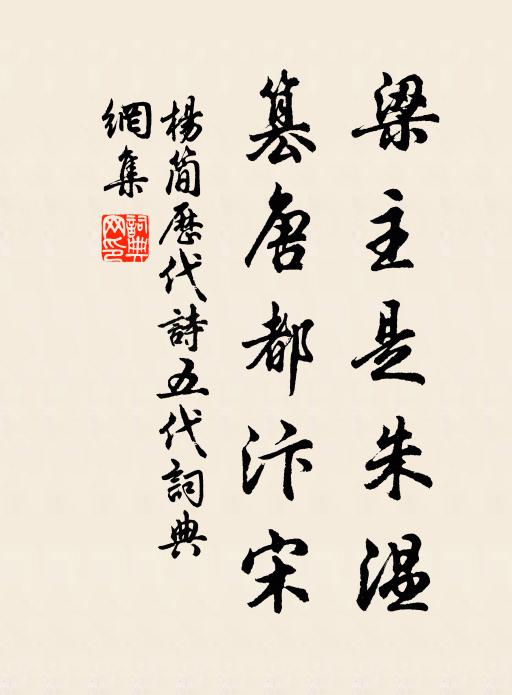 梁主是朱温
篡唐都汴宋
楊簡歷代詩五代詞典
網集
詞典網印